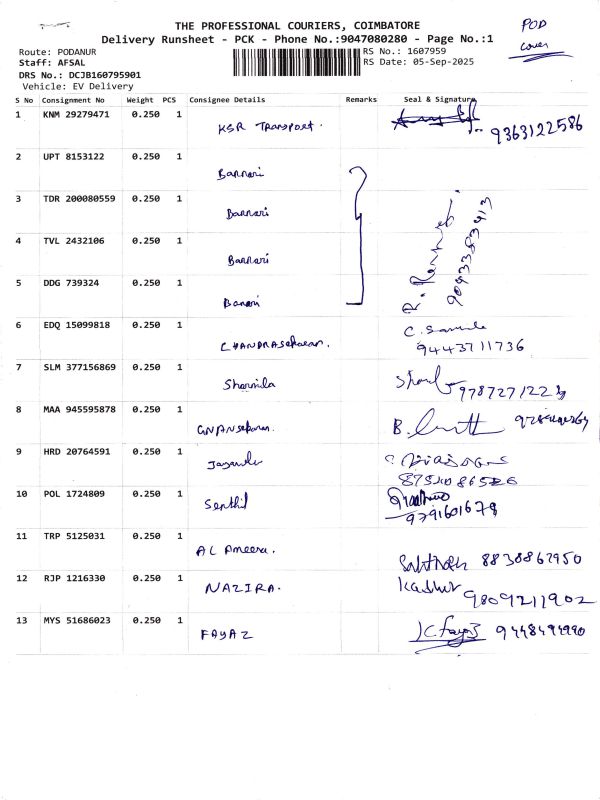 THE PROFESSIONAL COURIERS, COIMBATORE
POD
Delivery Runsheet - PCK - Phone No.:9047080280 - Page No.:1
cover
Route: PODANUR
RS No.: 1607959
Staff: AFSAL
RS Date: 05-Sep-2025
DRS No.: DCJB160795901
Vehicle: EV Delivery
S No Consignment No Weight PCS Consignee Details Remarks Seal & Signature
1 KNM 29279471 0.250 1 KSR Transport. 9363122586
2 UPT 8153122 0.250 1 Bannari
3 TDR 200080559 0.250 1 Bannari
4 TVL 2432106 0.250 1 Bannari
5 DDG 739324 0.250 1 Banari
6 EDQ 15099818 0.250 1 CHANDRASekaran.
9443711736
7 SLM 377156869 0.250 1 Sharmila
8 MAA 945595878 0.250 1 GNANSekaran.
9 HRD 20764591 0.250 1
10 POL 1724809 0.250 1 Senthil
9791601679
11 TRP 5125031 0.250 1 AL Ameera.
8838862950
12 RJP 1216330 0.250 1 NAZIRA.
9809211902
13 MYS 51686023 0.250 1 FAYAZ K. Fayaz 9448494990